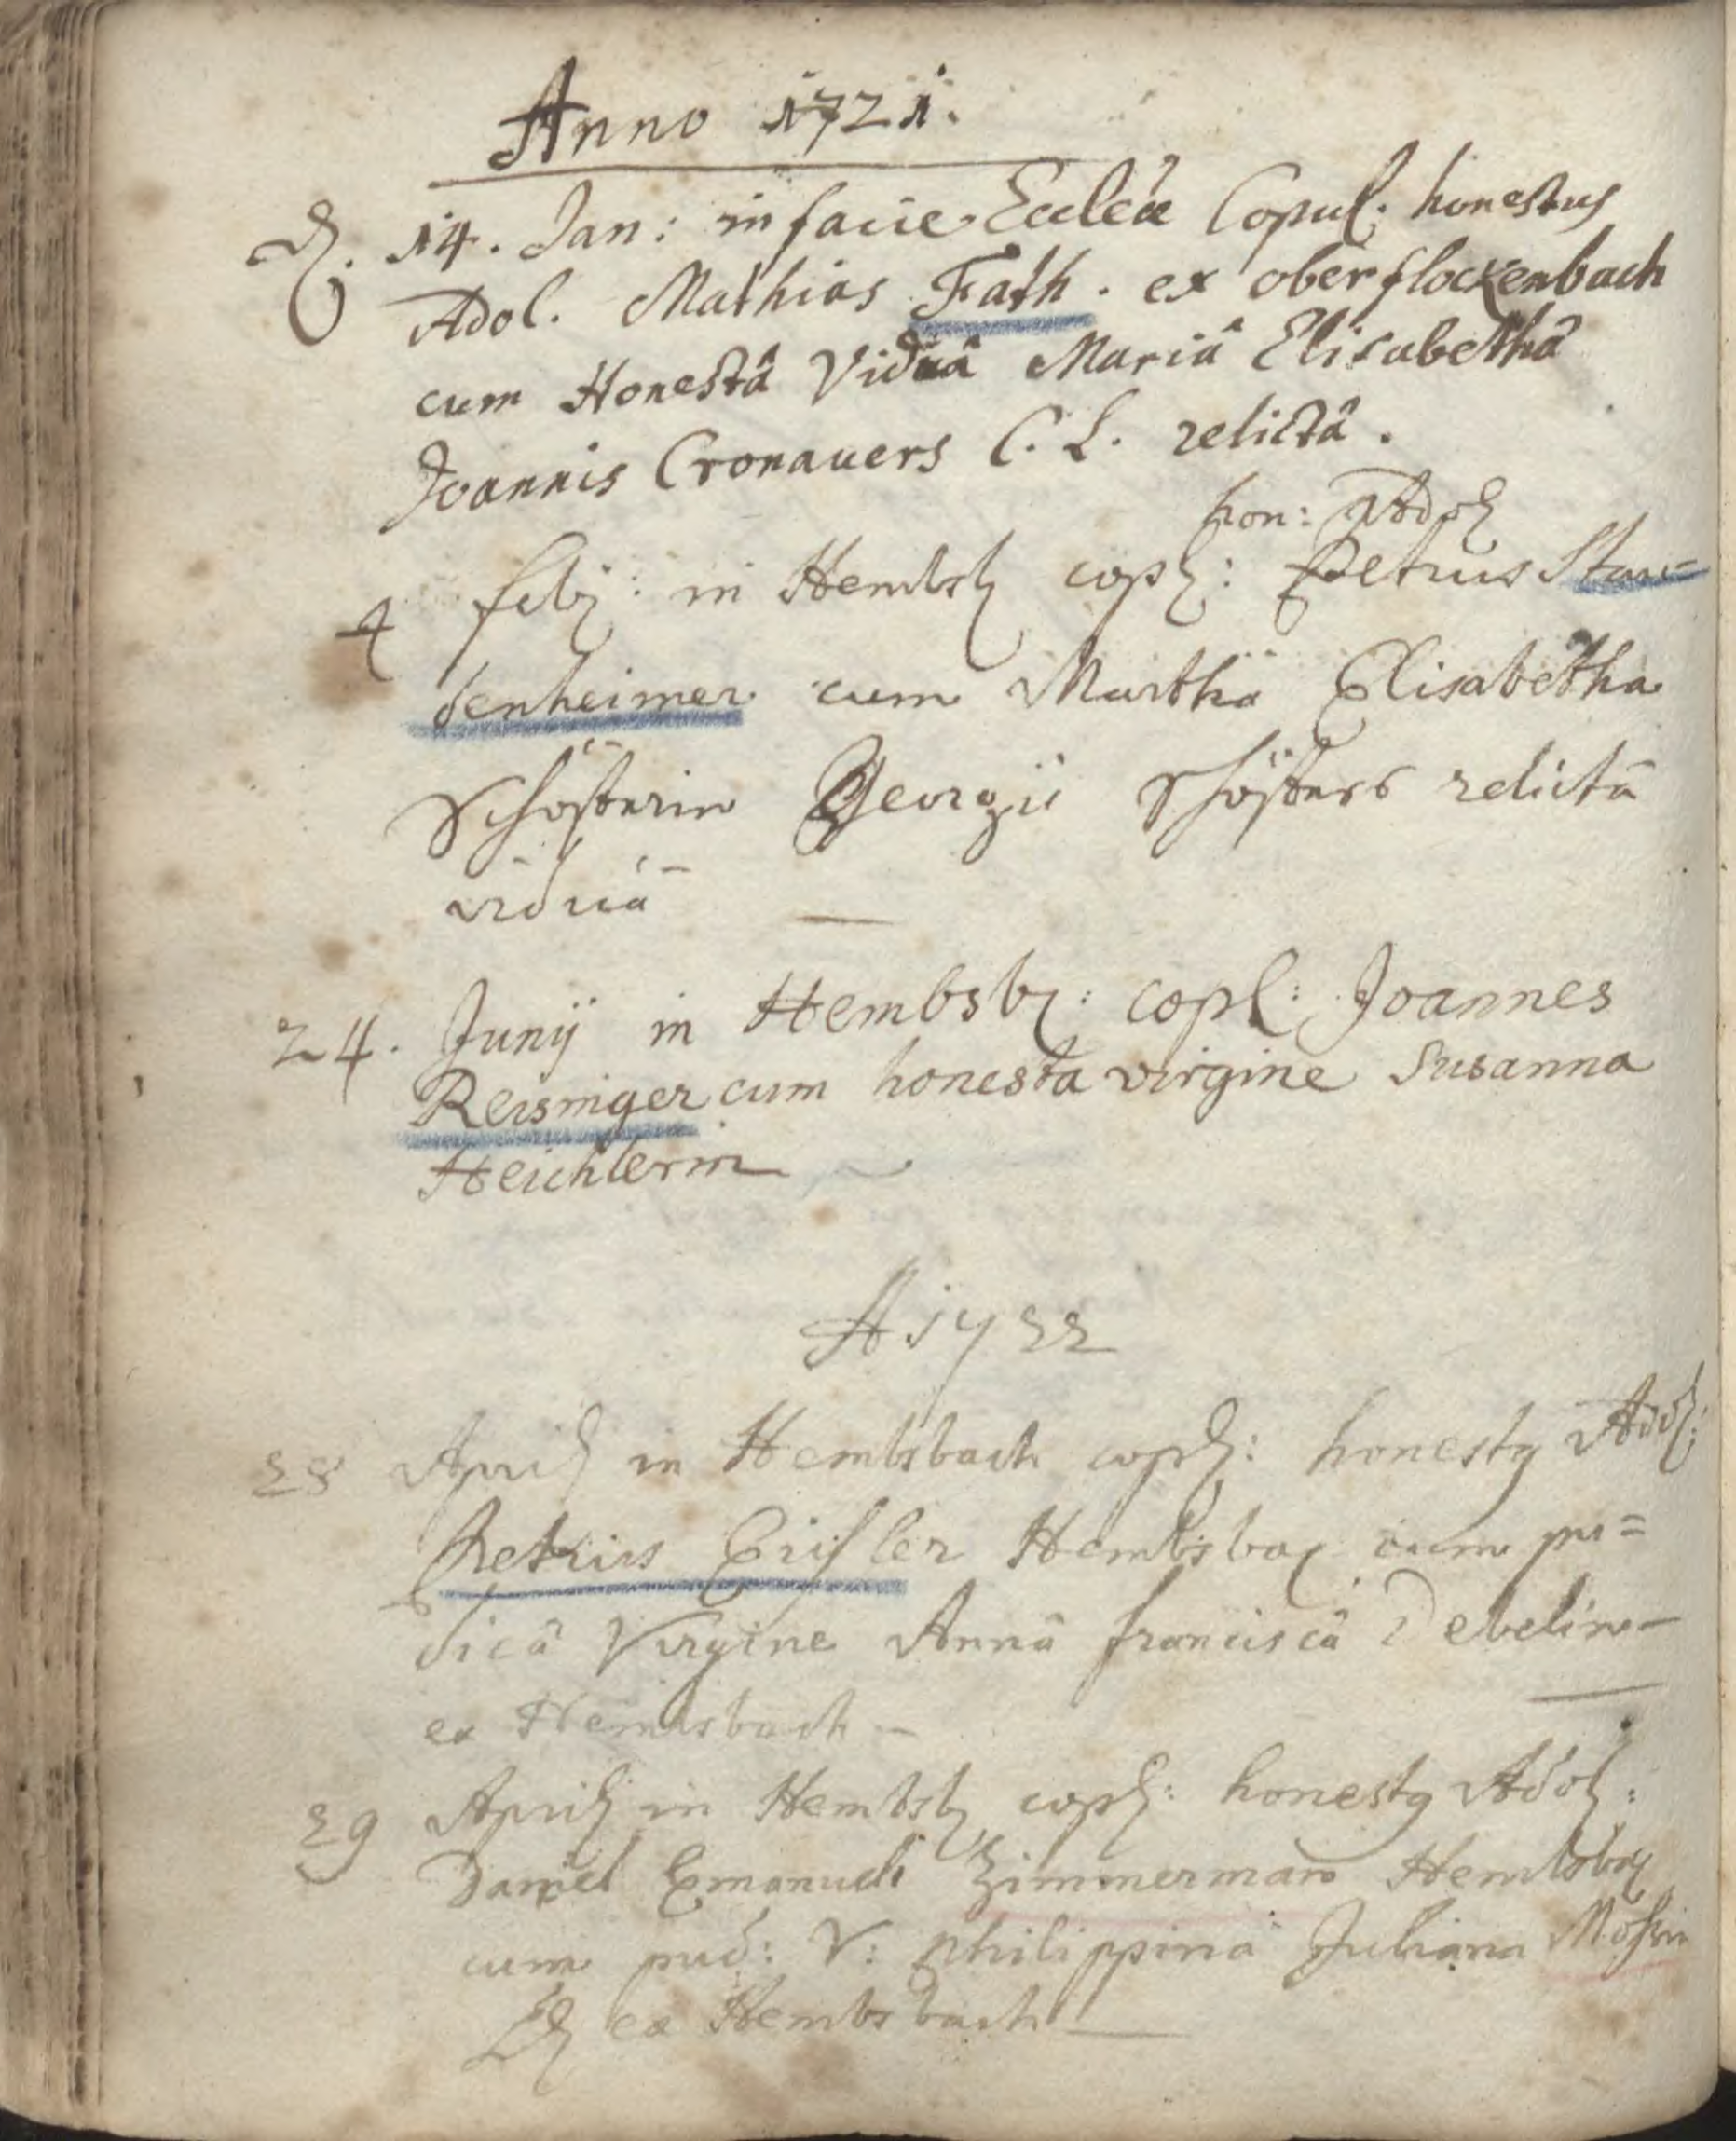 Anno 1721.
D. 14. Jan: in facie Eccleae Copul: honestus
Adol. Mathias Fath. ex oberflockenbach
cum Honestâ Viduâ Mariâ Elisabethâ
Joannis Cronauers C. L. relictâ.
hon: Adol
4 feb: in Hembsb copl: Petrus Stau=
denheimer cum Martha Elisabetha
Georgii relictâ
viduâ
24. Junij in Hembsb: copl: Joannes
Reisinger cum honesta virgine Susanna
Heichlerin
A 1722
28 April in Hembsbach copl: honestus Adol:
Petrus Hembsbac cum pu=
dicâ Virgine Annâ franciscâ
ex Hembsbach
29 April in Hembsb copl: honestus Adol:
Daniel Emanuel Zimmerman Hembsbac
cum pud: V: philippina Juliana
ex Hembsbach